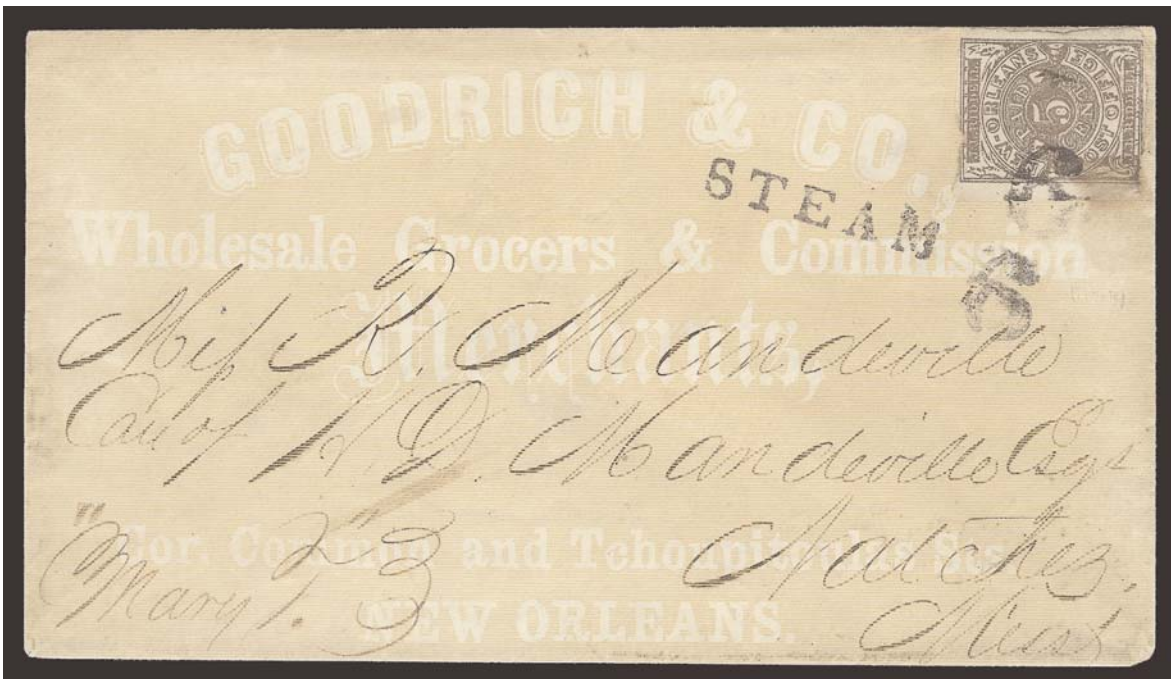 GOODRICH & CO.,
Wholesale Grocers & Commission
Merchants,
Cor. Common and Tchoupitoulas Sts.
NEW ORLEANS.
NEW-ORLEANS POST OFFICE
PAID 5 CENTS
STEAM
6
6
Miss R. Mandeville
Care of H. D. Mandeville Esqr
Natchez.
Miss
"Mary T." 3